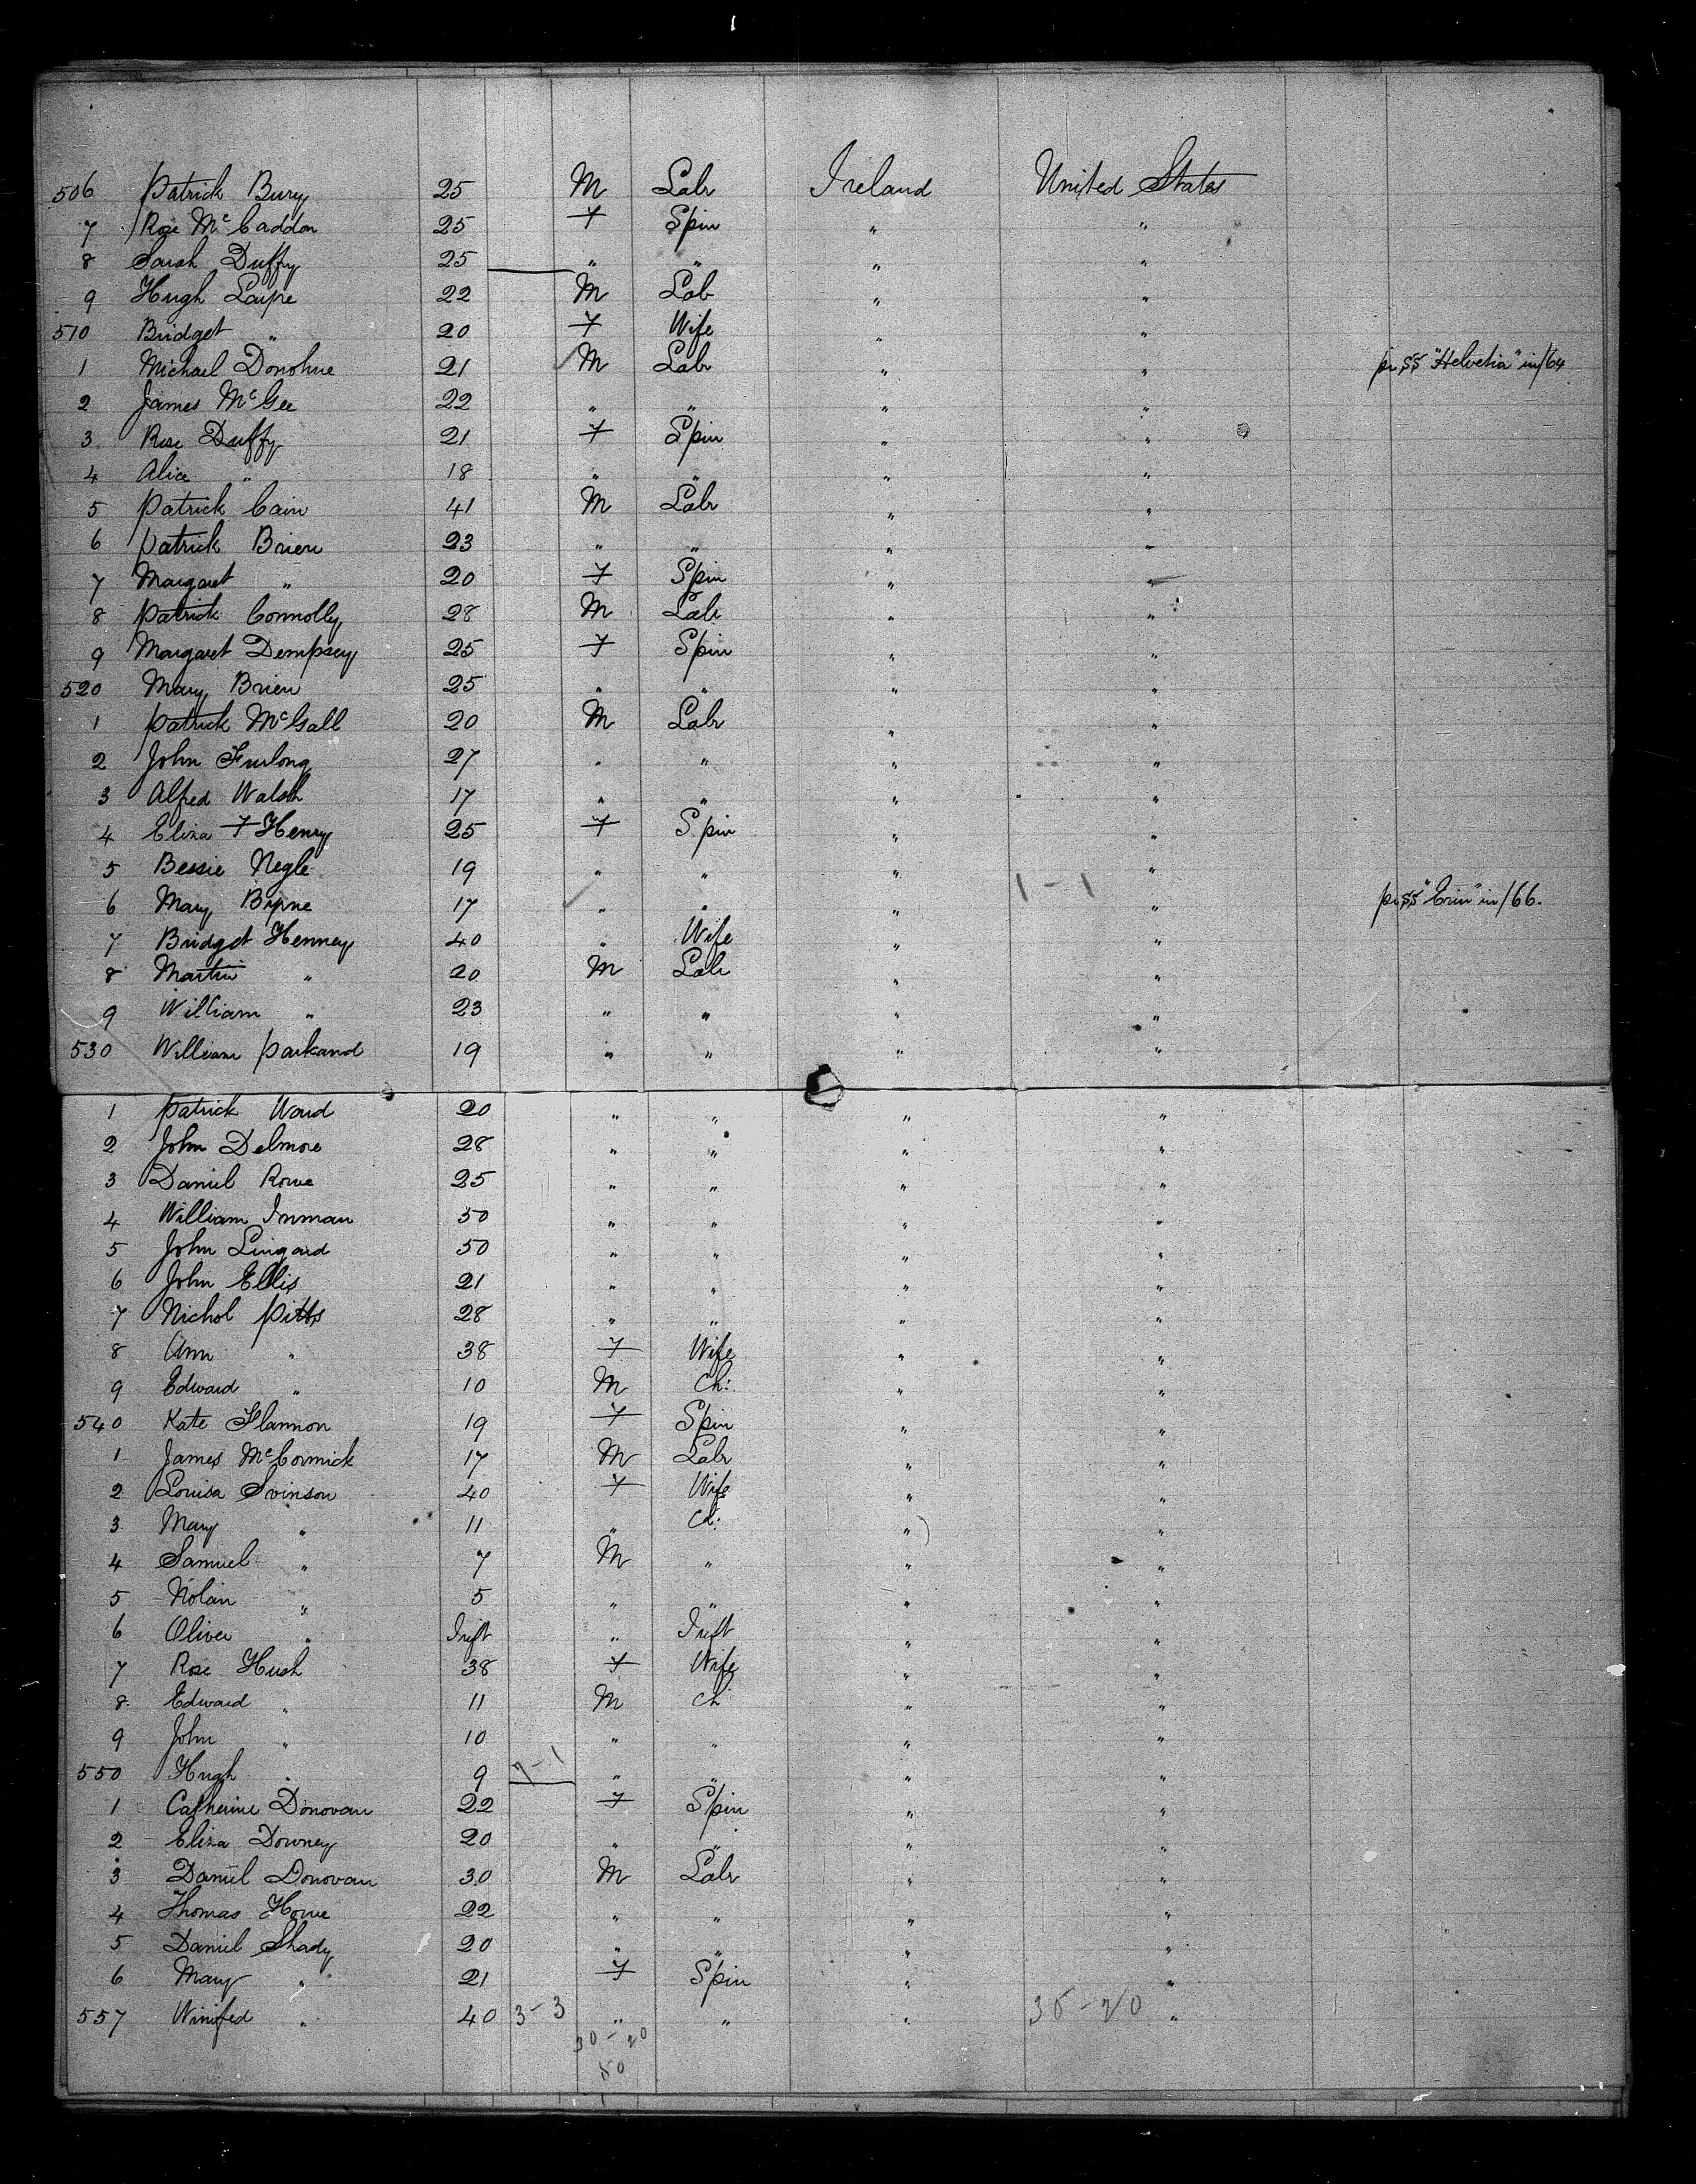 506 Patrick Bury 25 M Labr Ireland United States
7 Rose McCaddon 25 F Spin " "
8 Sarah Duffy 25 " " " "
9 Hugh 22 M Lab " "
510 Bridget " 20 F Wife " "
1 Michael Donohue 21 M Labr " " pr SS "Helvetia" in /64
2 James McGee 22 " " " "
3 Rose Duffy 21 F Spin " "
4 Alice " 18 " " " "
5 Patrick Cain 41 M Labr " "
6 Patrick Brien 23 " " " "
7 Margaret " 20 F Spin " "
8 Patrick Connolly 28 M Labr " "
9 Margaret Dempsey 25 F Spin " "
520 Mary Brien 25 " " " "
1 Patrick McGall 20 M Labr " "
2 John Furlong 27 " " " "
3 Alfred Walsh 17 " " " "
4 Eliza F Henry 25 F Spin " "
5 Bessie Negle 19 " " " 1-1 "
6 Mary Byrne 17 " " " " pr SS "Erin" in /66.
7 Bridget Henney 40 " Wife " "
8 Martin " 20 M Labr " "
9 William " 23 " " " "
530 William Parkand 19 " " " "
1 Patrick Ward 20 " " " "
2 John Delmore 28 " " " "
3 Daniel Rowe 25 " " " "
4 William Inman 50 " " " "
5 John Lingard 50 " " " "
6 John Ellis 21 " " " "
7 Nichol Pitts 28 " " " "
8 Ann " 38 F Wife " "
9 Edward " 10 M Ch: " "
540 Kate Flannon 19 F Spin " "
1 James McCormick 17 M Labr " "
2 Louisa Svinson 40 F Wife " "
3 Mary " 11 " Ch: " "
4 Samuel " 7 M " " "
5 Nolan " 5 " " " "
6 Oliver " Inft " Inft " "
7 Rose Hush 38 F Wife " "
8 Edward " 11 M Ch " "
9 John " 10 " " " "
550 Hugh " 9 " " " "
1 Catherine Donovan 22 F Spin " "
2 Eliza Downey 20 " " " "
3 Daniel Donovan 30 M Labr " "
4 Thomas Howe 22 " " " "
5 Daniel Shady 20 " " " "
6 Mary " 21 F Spin " "
557 Winifed " 40 3-3 " " " 30-20 "
30-20